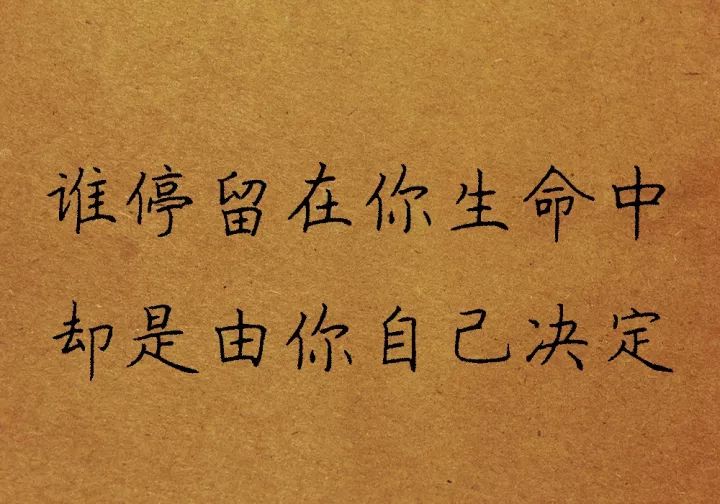 谁停留在你生命中
却是由你自己决定